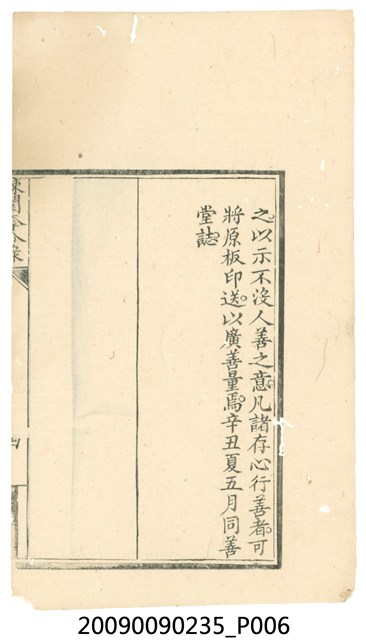 之以示不沒人善之意凡諸存心行善者可
將原板印送以廣善量焉辛丑夏五月同善
堂誌
20090090235_P006